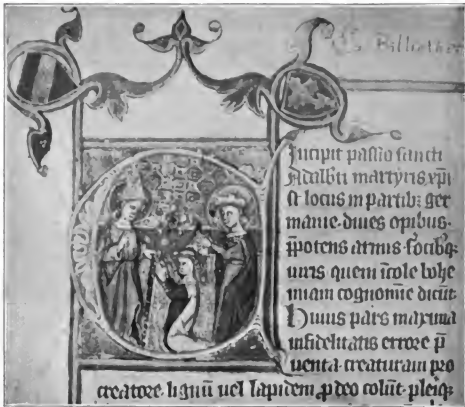 Incipit passio sancti
Adalbti martyris xp̄i
st locus in partib; ger
manie. diues opibus.
p̄potens armis. ferocibq;
uiris quem īcole bohe
miam cognomīe dicūt.
Huius pars maxima
infidelitatis errore p̄
uenta. creaturam pro
creatore. lignū uel lapidem. ꝓ deo colūt. pleiq;